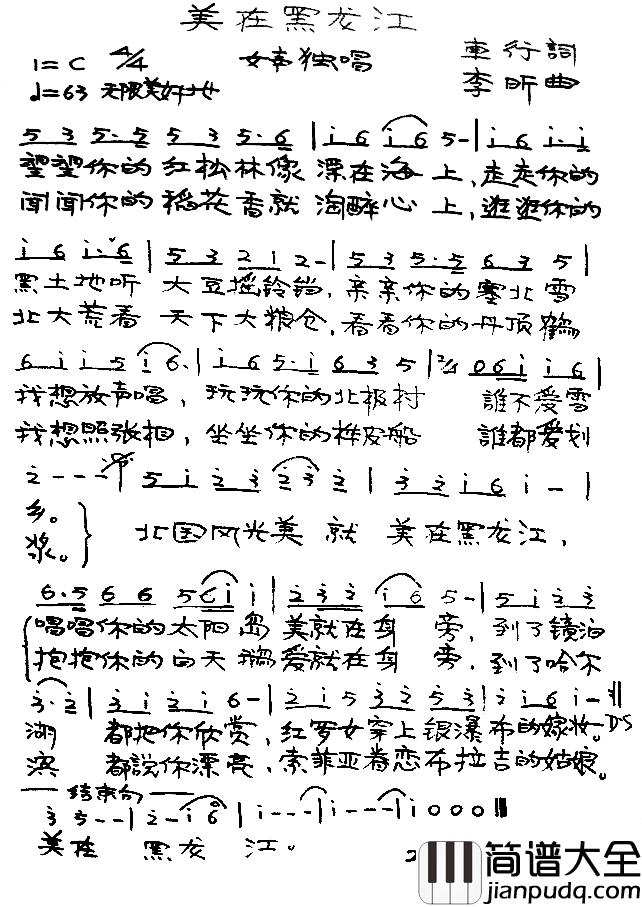 美在黑龙江
1=C 4/4 女声独唱 車行詞
♩=63 无限美好地 李昕曲
5 3 5·5 5 3 5·6 | i 6 i 6 5 - | i 6 i·i
望望你的红松林像漂在海上,走走你的
闻闻你的稻花香就陶醉心上,逛逛你的
i 6 i·6 | 5 3 2 1 2 - | 5 3 5·5 6 3 5 |
黑土地听大豆摇铃铛,亲亲你的塞北雪
北大荒看天下大粮仓,看看你的丹顶鹤
6 i i 5 i 6· | i 6 5·i 6 3 5 | 2/4 0 6 i i 6 |
我想放声唱,玩玩你的北极村 誰不爱雪
我想照张相,坐坐你的桦皮船 誰都爱划
2 - - - | 5 i 2 3 2 3 2 | 3 2 i 6 i - |
乡。 北国风光美就美在黑龙江,
浆。
6·5 6 6 5 6 i i | 2 3 2 i 6 5 - | 5 i 2 3
唱唱你的太阳岛美就在身旁,到了镜泊
抱抱你的白天鹅爱就在身旁,到了哈尔
3·2 | 3 i 2 i 6 - | 2 i 5 3 2 5 3 | 2 i 6 i - DS
湖都把你欣赏,红罗女穿上银瀑布的嫁妆。
滨都説你漂亮,索菲亚眷恋布拉吉的姑娘。
结束句
3 5 - - | 2 - i 6 | i - - - | i - - - | i 0 0 0 |||
美在黑龙江。
2
简谱大全
jianpudq.com